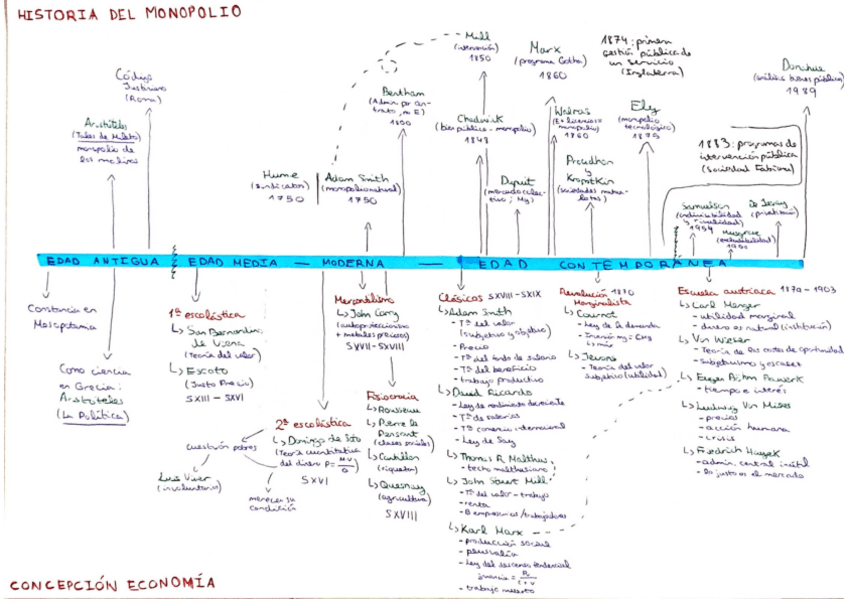 HISTORIA DEL MONOPOLIO
Código
Justiniano
(Roma)
Aristóteles
(Tales de Mileto)
monopolio de
los molinos
Hume
(sindicatos)
1750
Adam Smith
(monopolio natural)
1750
Bentham
1800
Mill
(intervención)
1850
Chadwick
(bien público - monopolio)
1848
Dupuit
Marx
(programa Gotha)
1860
Walras
monopolio)
1860
Proudhon
y
Kropotkin
1874: primera
gestión pública de
un servicio
(Inglaterra)
Ely
(monopolio
tecnológico)
1875
1883: programas de
intervención pública
(Sociedad Fabiana)
Samuelson
(indivisibilidad
1954
Musgrave
(excludibilidad)
(privatización)
Donahue
(análisis bienes públicos)
1989
EDAD ANTIGUA EDAD MEDIA — MODERNA — EDAD CONTEMPORÁNEA
Constancia en
Mesopotamia
Como ciencia
en Grecia:
Aristóteles
(La Política)
1ª escolástica
↳ San Bernardino
de Siena
(Teoría del valor)
↳ Escoto
(Justo Precio)
SXIII - SXVI
2ª escolástica
↳ Domingo de Soto
(Teoría cuantitativa
del dinero P = MV/Q)
SXVI
cuestión pobres
Luis Vives
(involuntario)
merecen su
condición
Mercantilismo
↳ John Cary
(autoproteccionismo
+ metales preciosos)
SXVII-SXVIII
Fisiocracia
↳ Rousseau
↳ Pierre le
Pensant
(clases sociales)
↳ Cantillon
(riqueza)
↳ Quesnay
(agricultura)
SXVIII
Clásicos SXVIII-SXIX
↳ Adam Smith
- Tª del valor
(subjetivo y objetivo)
- Precio
- Tª del fondo de salario
- Tª del beneficio
- trabajo productivo
↳ David Ricardo
- Ley de rendimiento decreciente
- Tª de salarios
- Tª comercio internacional
- Ley de Say
↳ Thomas R. Malthus
- techo malthusiano
↳ John Stuart Mill
- Tª del valor - trabajo
- renta
- B empresarios/trabajadores
↳ Karl Marx
- producción social
- plusvalía
- Ley del descenso tendencial
- trabajo muerto
Revolución 1870
Marginalista
↳ Cournot
- Ley de la demanda
↳ Jevons
- Teoría del valor
subjetivo (utilidad)
Escuela austríaca 1870 - 1903
↳ Carl Menger
- utilidad marginal
- dinero es natural (institución)
↳ Von Wieser
- Teoría de los costes de oportunidad
- subjetivismo y escasez
↳ Eugen Böhm Bawerk
- tiempo e interés
↳ Ludwig Von Mises
- precios
- acción humana
- crisis
↳ Friedrich Hayek
- admin. central inútil
- lo justo es el mercado
CONCEPCIÓN ECONOMÍA